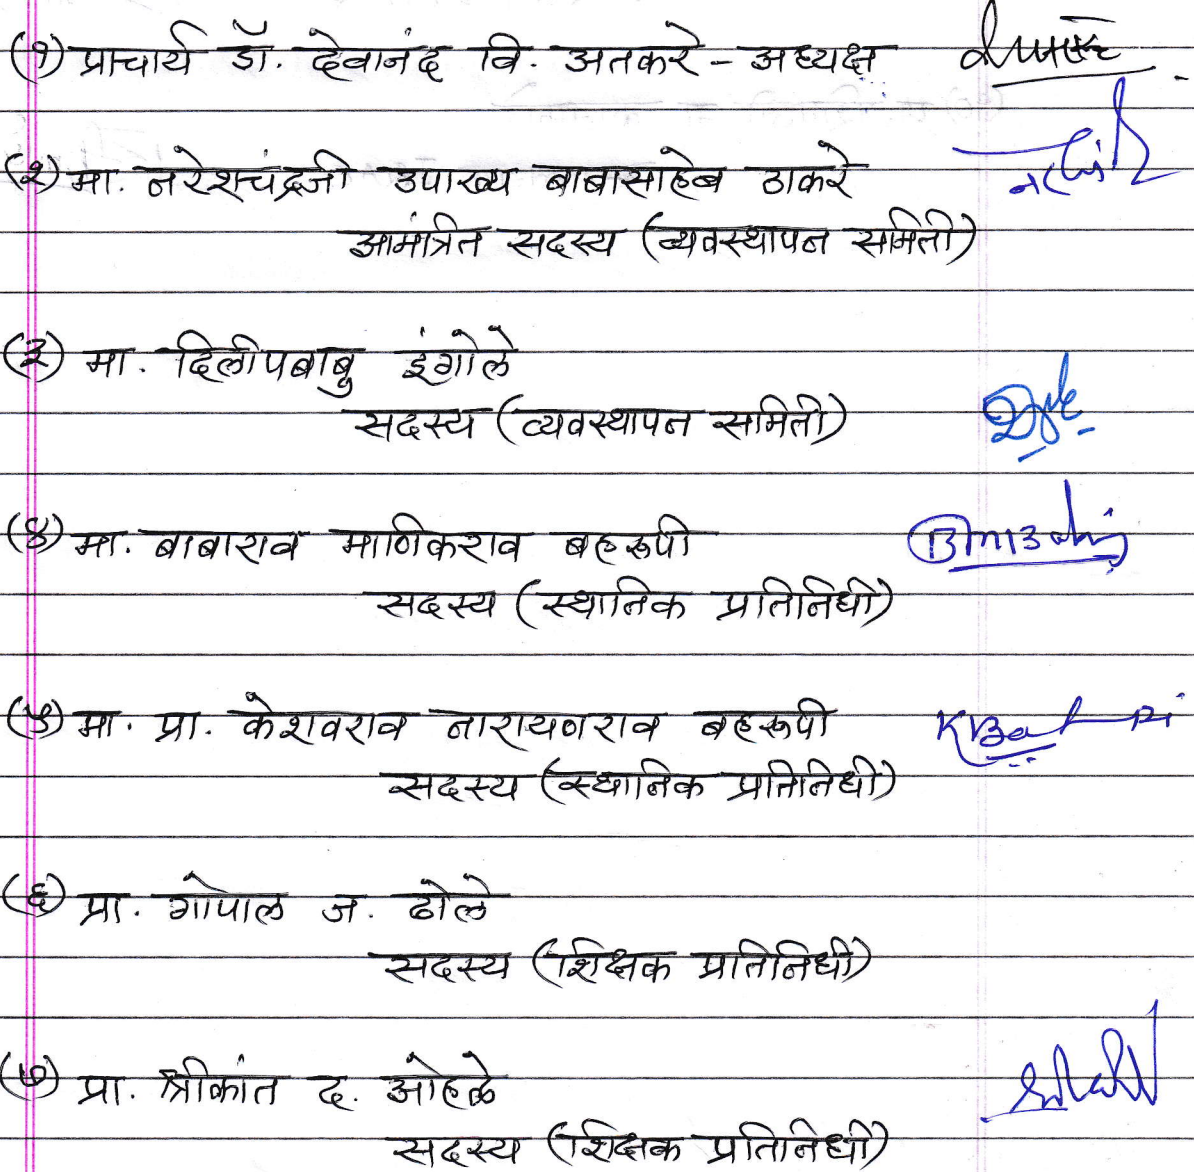 (१) प्राचार्य डॉ. देवानंद वि. अतकरे - अध्यक्ष
(२) मा. नरेशचंद्रजी उपाख्य बाबासाहेब ठाकरे
आमंत्रित सदस्य (व्यवस्थापन समिती)
(३) मा. दिलीपबाबु इंगोले
सदस्य (व्यवस्थापन समिती)
(४) मा. बाबाराव माणिकराव बहुरूपी
सदस्य (स्थानिक प्रतिनिधी)
(५) मा. प्रा. केशवराव नारायणराव बहुरूपी
सदस्य (स्थानिक प्रतिनिधी)
(६) प्रा. गोपाल ज. ढोले
सदस्य (शिक्षक प्रतिनिधी)
(७) प्रा. श्रीकांत द. ओहळे
सदस्य (शिक्षक प्रतिनिधी)